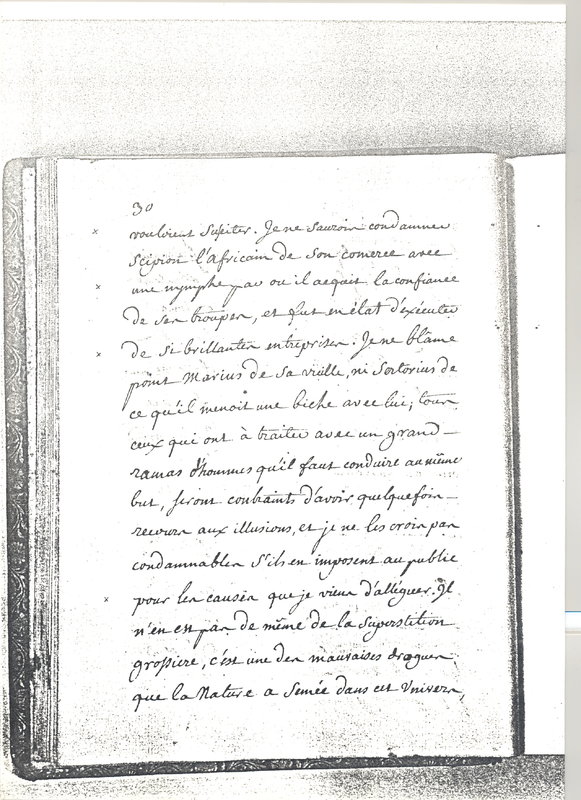 30
vouloient susciter. Je ne saurois condamner
Scipion l'africain de son comerce avec
une nymphe par ou il acquit la confiance
de ses troupes, et fut en état d'exécuter
de si brillantes entreprises. Je ne blâme
point Marius de sa vieille, ni Sertorius de
ce qu'il menoit une biche avec lui; tous
ceux qui ont à traiter avec un grand
ramas d'hommes qu'il faut conduire au même
but, seront contraints d'avoir quelque fois
recours aux illusions, et je ne les crois pas
condamnables S'ils en imposent au public
pour les causes que je viens d'alléguer. Il
n'en est pas de même de la Superstition
grossiere, c'est une des mauvaises drogues
que la Nature a Semée dans cet Univers,